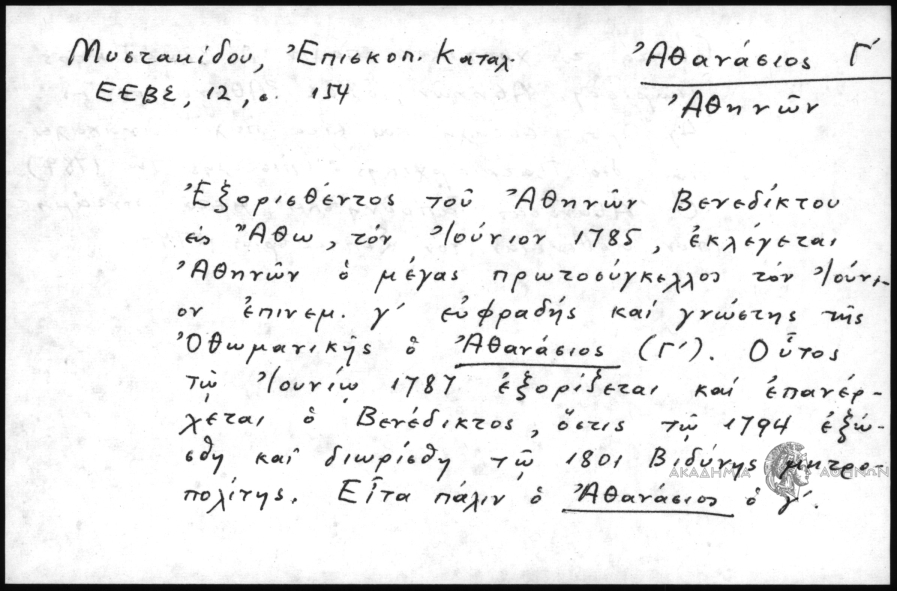 Μυστακίδου, Ἐπισκοπ. Καταλ. Ἀθανάσιος Γ´
ΕΕΒΣ, 12, σ. 154 Ἀθηνῶν
Ἐξορισθέντος τοῦ Ἀθηνῶν Βενεδίκτου
εἰς Ἄθω, τόν Ἰούνιον 1785, ἐκλέγεται
Ἀθηνῶν ὁ μέγας πρωτοσύγκελλος τόν Ἰούνι-
ον ἐπινεμ. γ´ εὐφραδής καί γνώστης τῆς
Ὀθωμανικῆς ὁ Ἀθανάσιος (Γ´). Οὗτος
τῷ Ἰουνίῳ 1787 ἐξορίζεται καί ἐπανέρ-
χεται ὁ Βενέδικτος, ὅστις τῷ 1794 ἐξώ-
σθη καί διωρίσθη τῷ 1801 Βιδύνης μητρο-
πολίτης. Εἶτα πάλιν ὁ Ἀθανάσιος ὁ γ´.
ΑΚΑΔΗΜΙΑ ΑΘΗΝΩΝ